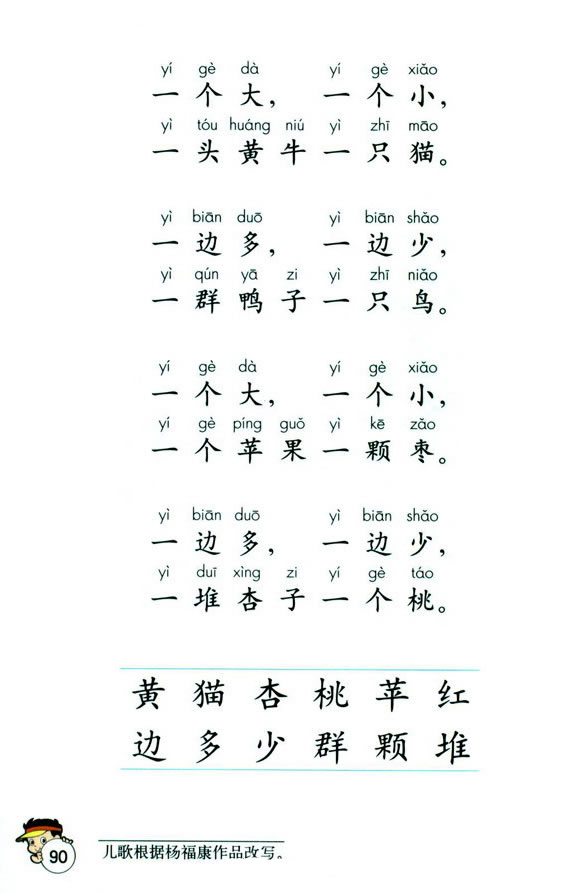 yí gè dà yí gè xiǎo
一个大， 一个小，
yì tóu huáng niú yì zhī māo
一头黄牛一只猫。
yì biān duō yì biān shǎo
一边多， 一边少，
yì qún yā zi yì zhī niǎo
一群鸭子一只鸟。
yí gè dà yí gè xiǎo
一个大， 一个小，
yí gè píng guǒ yì kē zǎo
一个苹果一颗枣。
yì biān duō yì biān shǎo
一边多， 一边少，
yì duī xìng zi yí gè táo
一堆杏子一个桃。
黄 猫 杏 桃 苹 红
边 多 少 群 颗 堆
儿歌根据杨福康作品改写。
90